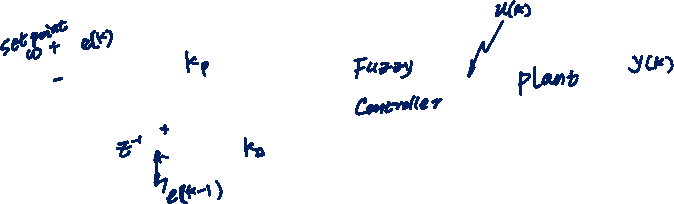 set point
ω + e(k)
-
kp
Fuzzy
Controller
u(k)
plant
y(k)
z⁻¹
+
-
kD
e(k-1)